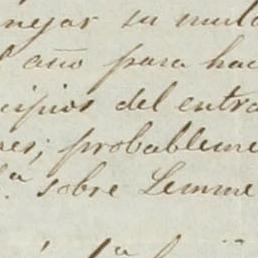 nejar su mula
año para hac
cipios del entra
res; probableme
sobre Lemme